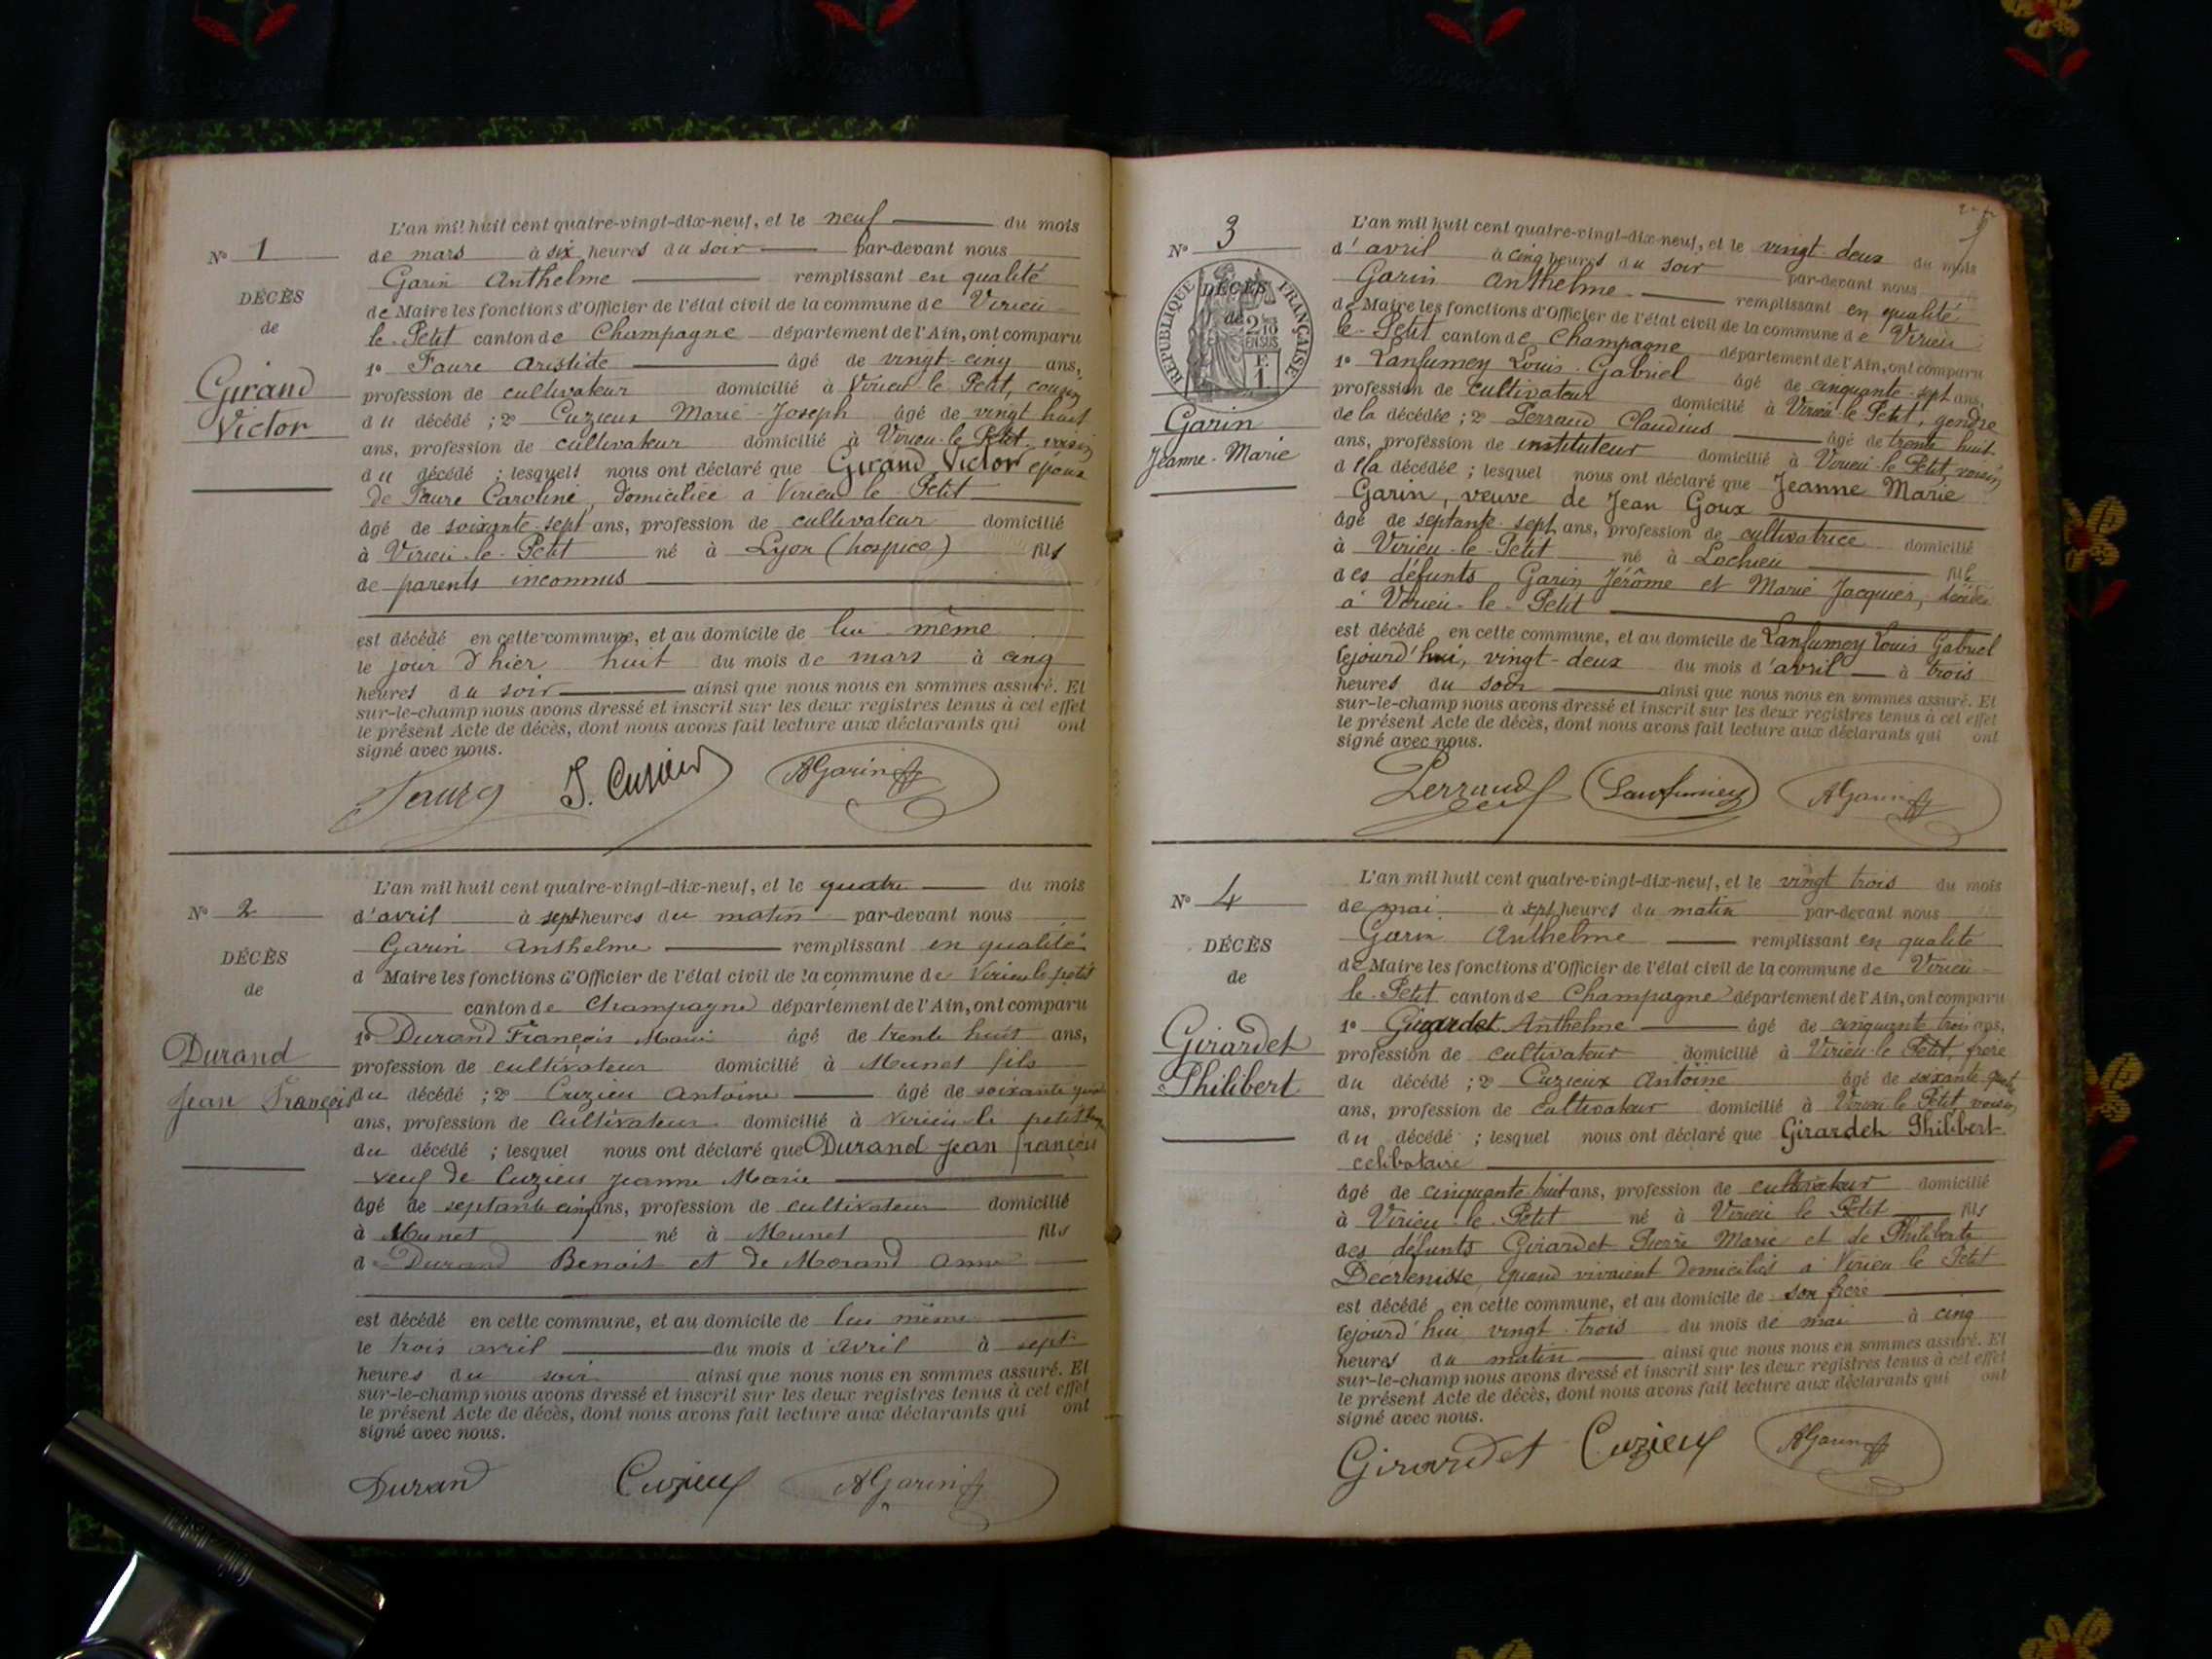 L'an mil huit cent quatre-vingt-dix-neuf, et le neuf du mois
N° 1
de mars à six heures du soir par-devant nous
Garin Anthelme remplissant en qualité
DÉCÈS
de Maire les fonctions d'Officier de l'état civil de la commune de Virieu
de
le-Petit canton de Champagne département de l'Ain, ont comparu
1° Faure Aristide âgé de vingt-cinq ans,
Girand
profession de cultivateur domicilié à Virieu le Petit, cousin
Victor
du décédé ; 2° Cuzieux Marie-Joseph âgé de vingt huit
ans, profession de cultivateur domicilié à Virieu-le Petit voisin
du décédé ; lesquels nous ont déclaré que Girand Victor époux
de Faure Caroline, domiciliée à Virieu le Petit
âgé de soixante-sept ans, profession de cultivateur domicilié
à Virieu-le-Petit né à Lyon (hospice) fils
de parents inconnus
est décédé en cette commune, et au domicile de lui-même
le jour d'hier huit du mois de mars à cinq
heures du soir ainsi que nous nous en sommes assuré. Et
sur-le-champ nous avons dressé et inscrit sur les deux registres tenus à cet effet
le présent Acte de décès, dont nous avons fait lecture aux déclarants qui ont
signé avec nous.
Faure J. Cuzieux AGarin
L'an mil huit cent quatre-vingt-dix-neuf, et le quatre du mois
N° 2
d'avril à sept heures du matin par-devant nous
Garin Anthelme remplissant en qualité
DÉCÈS
d Maire les fonctions d'Officier de l'état civil de la commune de Virieu le petit
de
canton de Champagne département de l'Ain, ont comparu
1° Durand François Marie âgé de trente huit ans,
Durand
profession de cultivateur domicilié à Munet fils
Jean François
du décédé ; 2° Cuzieu Antoine âgé de soixante
ans, profession de Cultivateur domicilié à Virieu le petit
du décédé ; lesquel nous ont déclaré que Durand Jean françois
veuf de Cuzieu Jeanne Marie
âgé de septante cinq ans, profession de cultivateur domicilié
à Munet né à Munet fils
d Durand Benoit et de Morand Anne
est décédé en cette commune, et au domicile de lui même
le trois avril du mois d'avril à sept
heures du soir ainsi que nous nous en sommes assuré. Et
sur-le-champ nous avons dressé et inscrit sur les deux registres tenus à cet effet
le présent Acte de décès, dont nous avons fait lecture aux déclarants qui ont
signé avec nous.
Durand Cuzieux AGarin
L'an mil huit cent quatre-vingt-dix-neuf, et le vingt-deux du mois
N° 3
d'avril à cinq heures du soir par-devant nous
Garin Anthelme remplissant en qualité
DÉCÈS
de
RÉPUBLIQUE FRANÇAISE
de Maire les fonctions d'Officier de l'état civil de la commune de Virieu
le-Petit canton de Champagne département de l'Ain, ont comparu
1° Lanfumey Louis-Gabriel âgé de cinquante-sept ans,
profession de cultivateur domicilié à Virieu-le Petit, gendre
Garin
de la décédée ; 2° Perraud Claudius âgé de trente huit
Jeanne-Marie
ans, profession de instituteur domicilié à Virieu-le Petit, voisin
d la décédée ; lesquel nous ont déclaré que Jeanne Marie
Garin, veuve de Jean Goux
âgé de septante-sept ans, profession de cultivatrice domicilié
à Virieu-le-Petit né à Lochieu fil
des défunts Garin Jérôme et Marie Jacquier, décédés
à Virieu-le-Petit
est décédé en cette commune, et au domicile de Lanfumey Louis Gabriel
cejourd'hui, vingt-deux du mois d'avril à trois
heures du soir ainsi que nous nous en sommes assuré. Et
sur-le-champ nous avons dressé et inscrit sur les deux registres tenus à cet effet
le présent Acte de décès, dont nous avons fait lecture aux déclarants qui ont
signé avec nous.
Perraud Lanfumey AGarin
L'an mil huit cent quatre-vingt-dix-neuf, et le vingt trois du mois
N° 4
de mai à sept heures du matin par-devant nous
Garin Anthelme remplissant en qualité
DÉCÈS
de Maire les fonctions d'Officier de l'état civil de la commune de Virieu
de
le-Petit canton de Champagne département de l'Ain, ont comparu
1° Girardet Anthelme âgé de cinquante trois ans,
Girardet
profession de cultivateur domicilié à Virieu-le Petit, frère
Philibert
du décédé ; 2° Cuzieux Antoine âgé de soixante
ans, profession de cultivateur domicilié à Virieu le Petit voisin
du décédé ; lesquel nous ont déclaré que Girardet Philibert
célibataire
âgé de cinquante-huit ans, profession de cultivateur domicilié
à Virieu-le-Petit né à Virieu le Petit fils
des défunts Girardet Pierre Marie et de Philiberte
Décrenisse, quand vivaient domiciliés à Virieu le Petit
est décédé en cette commune, et au domicile de son frère
cejourd'hui vingt-trois du mois de mai à cinq
heures du matin ainsi que nous nous en sommes assuré. Et
sur-le-champ nous avons dressé et inscrit sur les deux registres tenus à cet effet
le présent Acte de décès, dont nous avons fait lecture aux déclarants qui ont
signé avec nous.
Girardet Cuzieux AGarin